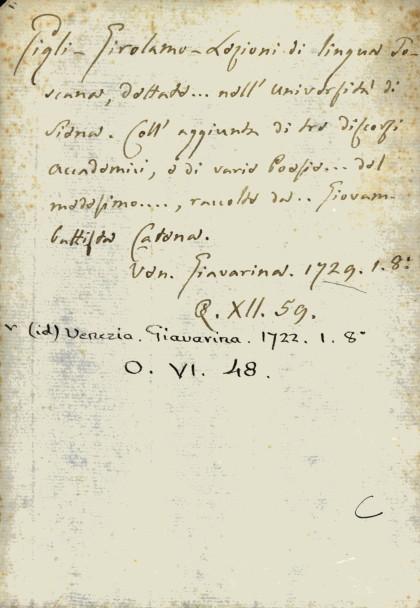 Gigli - Girolamo - Lezioni di lingua To-
scana, dettate... nell' Università di
Siena. Coll' aggiunta di tre discorsi
accademici, e di varie Poesie... del
medesimo...., raccolte da.. Giovam-
battista Catena.
Ven. Giavarina. 1729. 1. 8°
Q. XII. 59.
v (id) Venezia. Giavarina. 1722. 1. 8°
O. VI. 48.
C